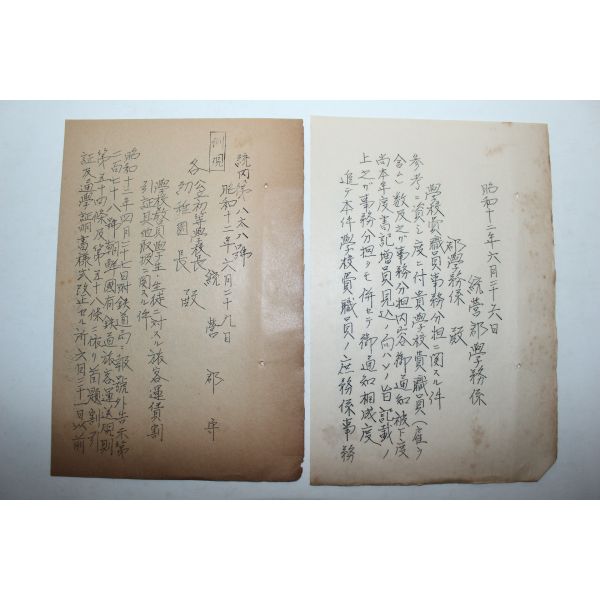 昭和十二年六月二十六日
統營郡學務係
郡學務係 殿
學校費職員事務分担ニ関スル件
参考ニ資シ度ニ付貴學校費職員(雇ヲ
含ム)数及之ガ事務分担内容御通知被下度
尚本年度書記増員見込ノ向ハソノ旨記載ノ
上之ガ事務分担ヲモ併セテ御通知相成度
追テ本件學校費職員ノ庶務係事務
統内第八六八號
昭和十二年六月二十九日
統營郡守
各 公立初等學校長
幼稚園長 殿
學校教員學生、生徒ニ対スル旅客運賃割
引証其他取扱ニ関スル件
昭和十二年四月二十七日附鉄道局報號外告示第
二百七十八號朝鮮國有鉄道旅客運送規則
第五十四條及第五十八條ニ依リ首題割引
証及通學証明書様式改正セル所六月三十一日以前